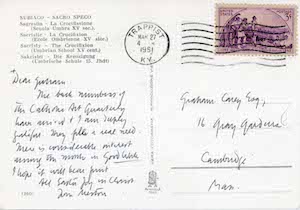 SUBIACO - SACRO SPECO
Sagrestia - La Crocifissione
(Scuola Umbra XV sec.)
Sacristie - La Crucifixion
(École Ombrienne XV siècle)
Sacristy - The Crucifixion
(Umbrian School XV cent.)
Sakristei - Die Kreuzigung
TRAPPIST
MAR 27
1951
KY.
3¢
Dear Graham
The back numbers of
the Catholic Art Quarterly
have arrived & I am deeply
grateful. They fill a real need.
There is considerable interest
among the monks in Good Work
I hope it will bear fruit.
All Easter Joy in Christ
fr. Merton
Graham Carey Esq.
16 Gray Gardens
Cambridge
Mass.